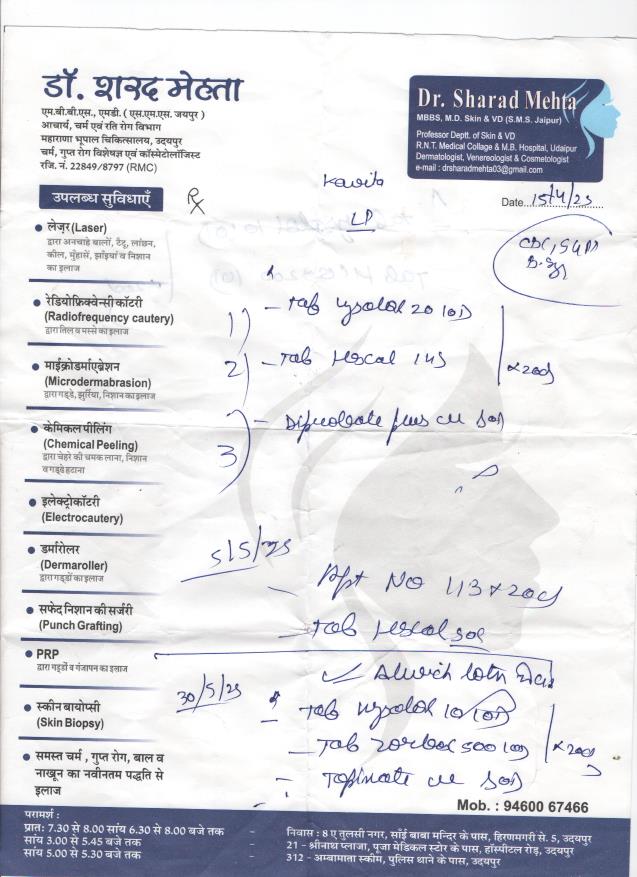 डॉ. शरद मेहता
एम.बी.बी.एस., एमडी. ( एस.एम.एस. जयपुर )
आचार्य, चर्म एवं रति रोग विभाग
महाराणा भूपाल चिकित्सालय, उदयपुर
चर्म, गुप्त रोग विशेषज्ञ एवं कॉस्मेटोलॉजिस्ट
रजि. नं. 22849/8797 (RMC)
Dr. Sharad Mehta
MBBS, M.D. Skin & VD (S.M.S. Jaipur)
Professor Deptt. of Skin & VD
R.N.T. Medical Collage & M.B. Hospital, Udaipur
Dermatologist, Venereologist & Cosmetologist
e-mail : drsharadmehta03@gmail.com
उपलब्ध सुविधाएँ
Rx
Kavita
Date 15/4/23
LP
CBC, SGPT
लेज़र (Laser)
द्वारा अनचाहे बालों, टैटू, लांछन,
कील, मुँहासें, झाँइयां व निशान
का इलाज
रेडियोफ्रिक्वेन्सी कॉटरी
(Radiofrequency cautery)
द्वारा तिल व मस्से का इलाज
माईक्रोडर्माएब्रेशन
(Microdermabrasion)
द्वारा गड्डे, झुर्रिया, निशान का इलाज
केमिकल पीलिंग
(Chemical Peeling)
द्वारा चेहरे की चमक लाना, निशान
व गड्डे हटाना
इलेक्ट्रोकॉटरी
(Electrocautery)
डर्मारोलर
(Dermaroller)
द्वारा गड्डों का इलाज
सफेद निशान की सर्जरी
(Punch Grafting)
PRP
द्वारा गड्डों व गंजापन का इलाज
स्कीन बायोप्सी
(Skin Biopsy)
समस्त चर्म , गुप्त रोग, बाल व
नाखून का नवीनतम पद्वति से
इलाज
1) - Tab Wysolone 20 1OD
2) - Tab
x 20d
3) -
5/5/23
- Rpt No 1,3 x 20d
- Tab
30/5/23
- Tab Wysolone 10 1OD
- Tab 500 1OD
x 20d
Mob. : 94600 67466
परामर्श :
प्रातः 7.30 से 8.00 सांय 6.30 से 8.00 बजे तक - निवास : 8 ए तुलसी नगर, साँई बाबा मन्दिर के पास, हिरणमगरी से. 5, उदयपुर
सायं 3.00 से 5.45 बजे तक - 21 - श्रीनाथ प्लाजा, पूजा मेडिकल स्टोर के पास, हॉस्पीटल रोड़, उदयपुर
सायं 5.00 से 5.30 बजे तक - 312 - अम्बामाता स्कीम, पुलिस थाने के पास, उदयपुर